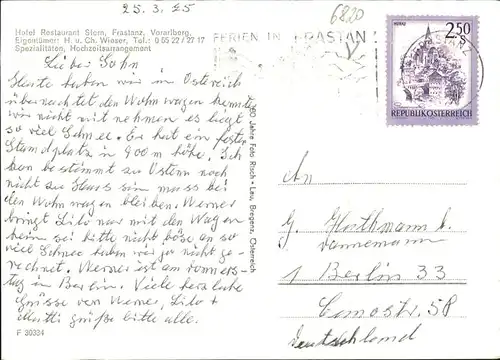 25. 3. 85
6820
Hotel Restaurant Stern, Frastanz, Vorarlberg.
Eigentümer: H. u. Ch. Wieser, Tel.: 0 55 22 / 27 17
Spezialitäten, Hochzeitsarrangement
FERIEN IN FRASTANZ
2.50
REPUBLIK ÖSTERREICH
Lieber Sohn
Heute haben wir in Östereich
übernachtet den Wohnwagen konnte
wir nicht mit nehmen es liegt
so viel Schnee. Er hat ein fester
Standplatz in 900 m höhe. Ich
kan bestimmt zu Ostern noch
nicht zu Haus sein muss bei
den Wohnwagen bleiben. Werner
bringt Lilo nur mit den Wagen
heim sei bitte nicht böse an so
viel Schnee haben wir ja nicht ge-
rechnet. Werner ist am donners-
tag in Berlin. Viele herzliche
Grüsse von Werner, Lilo +
Mutti grüße bitte alle.
F 30334
80 Jahre Foto Risch-Lau, Bregenz, Österreich
An
G. Huthmann b.
Dannemann
1 Berlin 33
Cunostr. 58
Deutschland